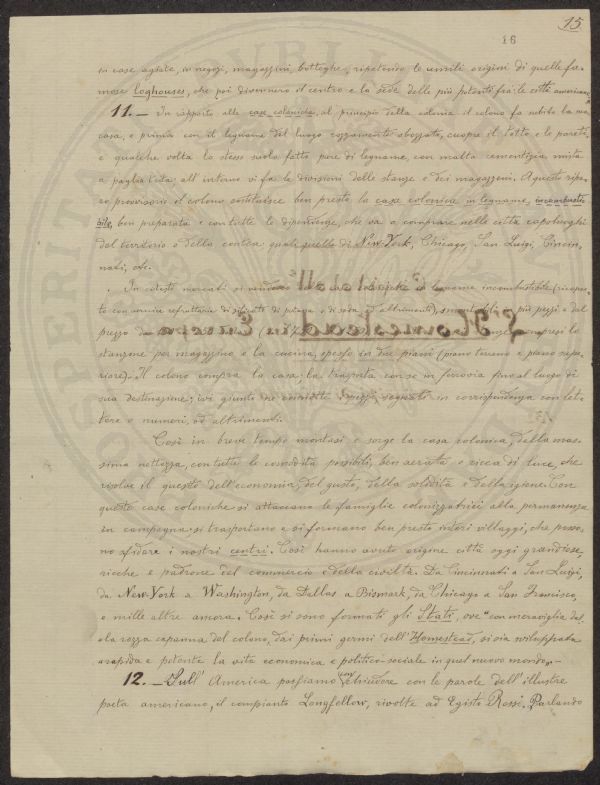 15
16
in case agiate, in negozi, magazzini, botteghe, ripetendo le umili origini di quelle fa-
mose loghouses, che poi divennero il centro e la sede delle più potenti fra le città americane.
11. — In rapporto alle case coloniche, al principio della colonia il colono fa subito la sua
casa, e prima con il legname del luogo rozzamente sbozzato, cuopre il tetto e le pareti,
e qualche volta lo stesso suolo fatto pure di legname, con malta cementizia mista
a paglia trita all'interno vi fa le divisioni delle stanze e dei magazzeni. A questo ripa-
ro provvisorio il colono sostituisce ben presto la casa colonica in legname, incombusti-
bile, ben preparata e con tutte le dipendenze, che va a comprare nelle città capoluoghi
del territorio o della contea: quali quelle di New-York, Chicago, San Luigi, Cincin-
nati, etc.
In cotesti mercati si vendono case in legname incombustibile (ricoper-
te con vernice refrattaria di silicato di potassa o di soda, od altrimenti), smontabili a più pezzi e del
prezzo da compresi lo
stanzone per magazzino e la cucina, spesso in due piani (piano terreno e piano supe-
riore). Il colono compra la casa; la trasporta con se in ferrovia fino al luogo di
sua destinazione; ivi giunto ne connette i pezzi segnati in corrispondenza con let-
tere o numeri, od altrimenti.
Così in breve tempo montasi e sorge la casa colonica, della mas-
sima nettezza, con tutte le comodità possibili, ben aerata e ricca di luce, che
risolve il quesito dell'economia, del gusto, della solidità e della igiene. Con
queste case coloniche si attaccano le famiglie colonizzatrici alla permanenza
in campagna: si trasportano e si formano ben presto interi villaggi, che posso-
no sfidare i nostri centri. Così hanno avuto origine città oggi grandiose,
ricche e padrone del commercio e della civiltà. Da Cincinnati a San Luigi,
da New-York a Washington, da Dallas a Bismark, da Chicago a San Francisco,
e mille altre ancora. Così si sono formati gli Stati, ove "con meraviglia dal-
la rozza capanna del colono, dai primi germi dell'Homestead, si sia sviluppata
rapida e potente la vita economica e politico-sociale in quel nuovo mondo„
12. — Sull'America possiamo conchiudere con le parole dell'illustre
poeta americano, il compianto Longfellow, rivolte ad Egisto Rossi. Parlando